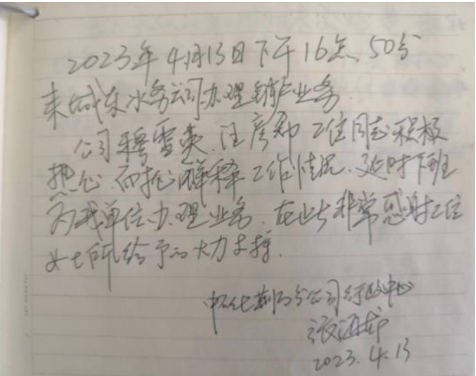 2023年4月13日下午16点50分
来城东水务公司办理销户业务
公司穆雪荣、汪彦和二位同志积极
热心、耐心解释工作情况、延时下班
为我单位办理业务、在此非常感谢二位
女士所给予的大力支持.
中石化荆门分公司行政中心
2023.4.13